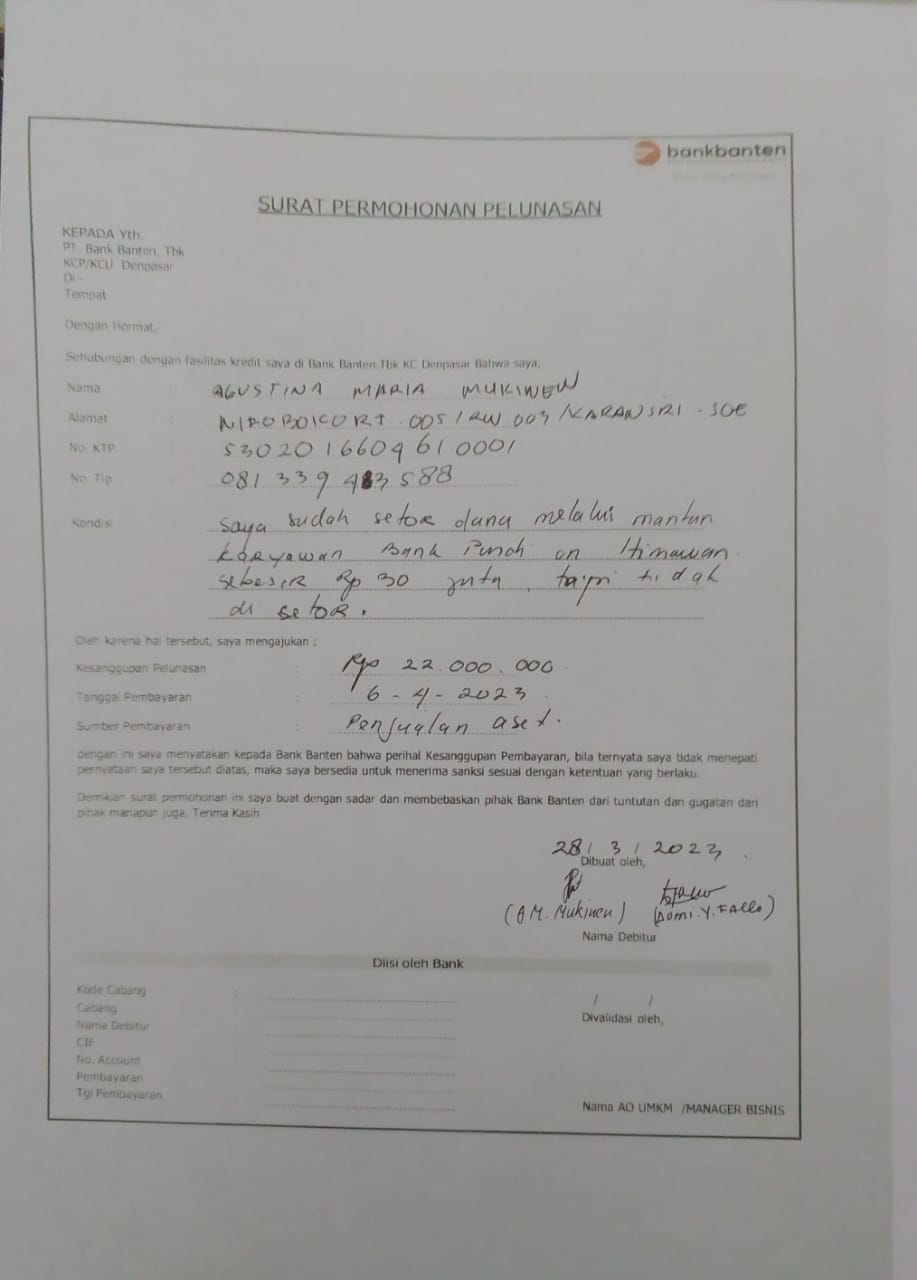 bankbanten
SURAT PERMOHONAN PELUNASAN
KEPADA Yth.
PT. Bank Banten, Tbk
KCP/KCU Denpasar
Di -
Tempat
Dengan Hormat,
Sehubungan dengan fasilitas kredit saya di Bank Banten.Tbk KC Denpasar Bahwa saya,
Nama : AGUSTINA MARIA MUKINEN
Alamat : RT. 005 / RW 003 / - SOE
No. KTP : 5302016604610001
No. Tlp : 081 339 483 588
Kondisi : Saya sudah setor dana melalui mantan
karyawan Bank an Himawan
sebesar Rp 30 juta, tapi tidak
di setor.
Oleh karena hal tersebut, saya mengajukan ;
Kesanggupan Pelunasan : Rp 22.000.000
Tanggal Pembayaran : 6 - 4 - 2023
Sumber Pembayaran : Penjualan aset.
dengan ini saya menyatakan kepada Bank Banten bahwa perihal Kesanggupan Pembayaran, bila ternyata saya tidak menepati
pernyataan saya tersebut diatas, maka saya bersedia untuk menerima sanksi sesuai dengan ketentuan yang berlaku.
Demikian surat permohonan ini saya buat dengan sadar dan membebaskan pihak Bank Banten dari tuntutan dan gugatan dari
pihak manapun juga, Terima Kasih
28 / 3 / 2023
Dibuat oleh,
(A M. Mukinen) (Domi.Y.Fallo)
Nama Debitur
Diisi oleh Bank
Kode Cabang :
Cabang
/ /
Nama Debitur
Divalidasi oleh,
CIF
No. Account
Pembayaran
Tgl Pembayaran
Nama AO UMKM /MANAGER BISNIS